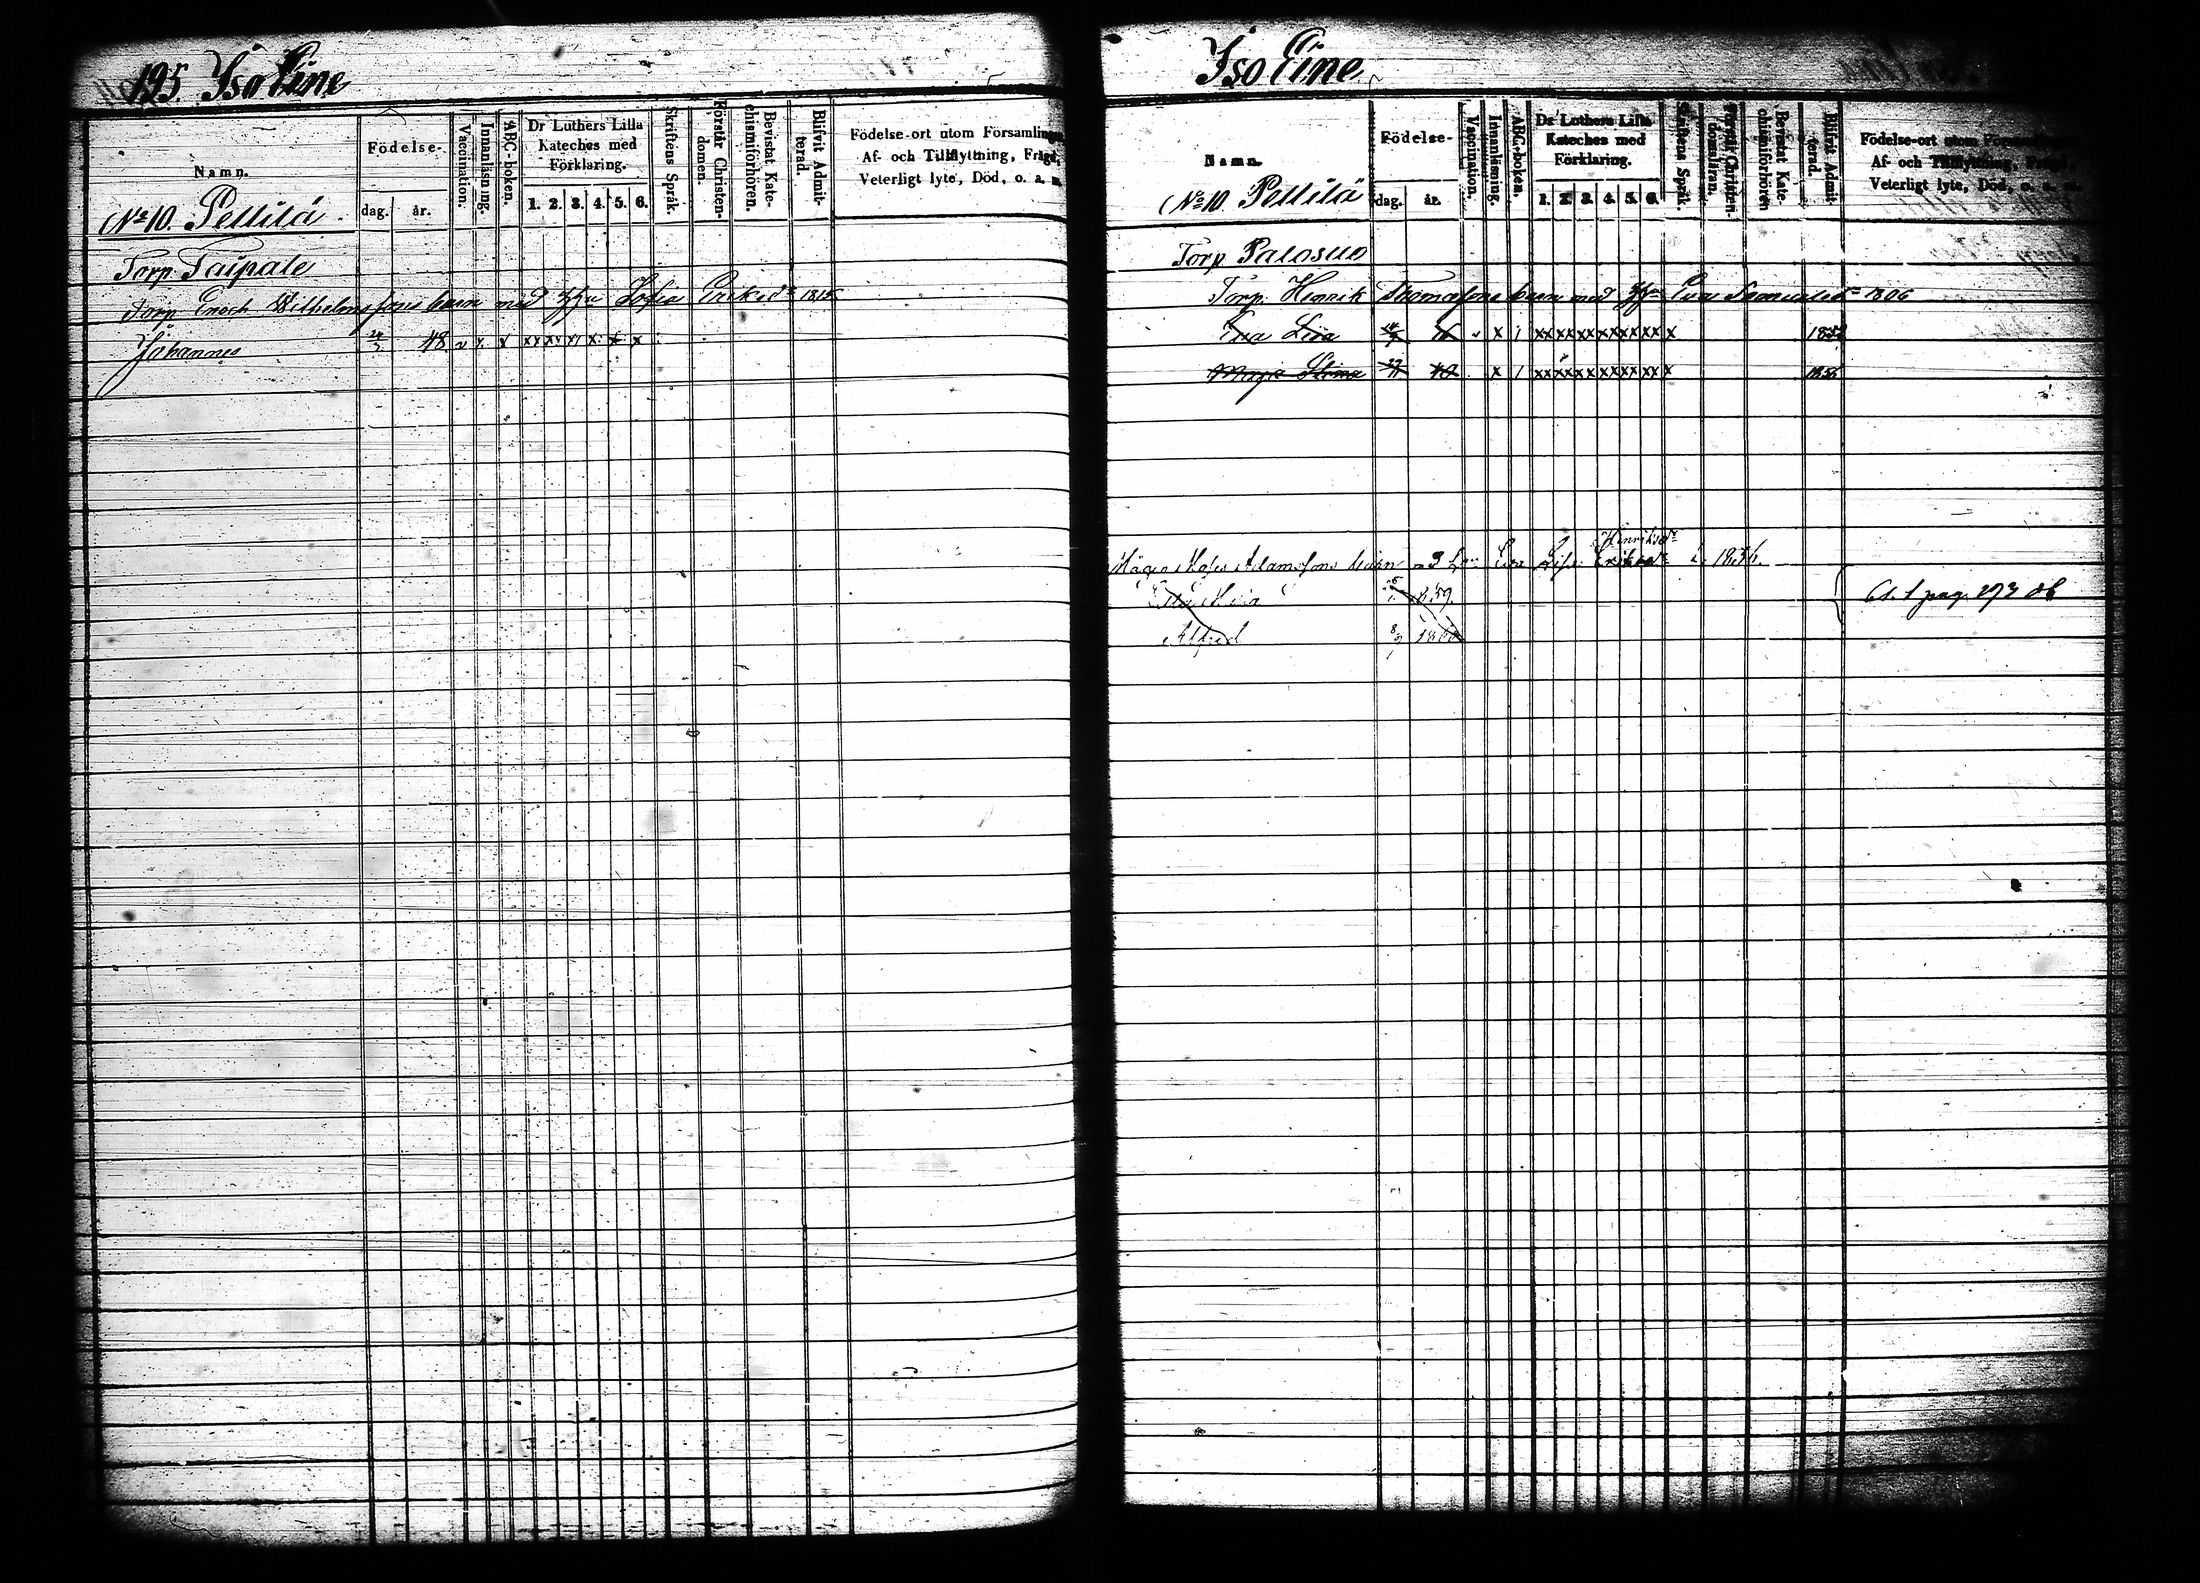 195. Iso Eine
Namn.
Födelse-
dag. år.
Vaccination.
Innanläsning.
ABC-boken.
Dr Luthers Lilla Kateches med Förklaring.
1. 2. 3. 4. 5. 6.
Skriftens Språk.
Förstår Christendomen.
Bevistat Katechismiförhören.
Blifvit Admitterad.
Födelse-ort utom Församlingen,
Af- och Tillflyttning, Frägd,
Veterligt lyte, Död, o. a. m.
No 10. Pelltilä
Torp Taipale
Torp. Enoch Wilhelmssons barn med Hu Sofia Eriksdr 1815
Johannes 24/3 48 v x x xx xx x x x x
Iso Eine
Namn.
Födelse-
dag. år.
Vaccination.
Innanläsning.
ABC-boken.
Dr Luthers Lilla Kateches med Förklaring.
1. 2. 3. 4. 5. 6.
Skriftens Språk.
Förstår Christendomsläran.
Bevistat Katechismiförhören
Blifvit Admitterad.
Födelse-ort utom Församlingen
Af- och Tillflyttning, Frägd,
Veterligt lyte, Död, o. a. m.
No 10. Pelltilä
Torp Palosuo
Torp. Henrik Thomassons barn med Hu Eva Samuelsdr 1806
Eva Lisa x 1 xx xx xx xx xx xx x
Maja Stina x 1 xx xx xx xx xx xx x 1856
Henriksdr
Adamssons barn Eva Eriksdr 1836.
59.
Alfred 8/9 1860
A. 1 pag. 293